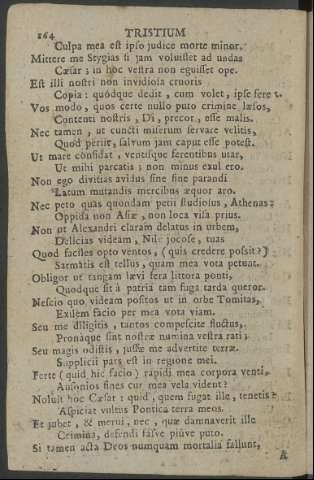 164 TRISTIUM
Culpa mea est ipso judice morte minor.
Mittere me Stygias si jam voluisset ad undas
Cæsar; in hoc vestra non eguisset ope.
Est illi nostri non invidiosa cruoris
Copia: quódque dedit, cum volet, ipse feret.
Vos modo, quos certe nullo puto crimine læsos,
Contenti nostris, Dî, precor, este malis.
Nec tamen, ut cuncti miserum servare velitis,
Quod periit, salvum jam caput esse potest.
Ut mare considat, ventisque ferentibus utar,
Ut mihi parcatis; non minus exul ero.
Non ego divitias avidus sine fine parandi
Latum mutandis mercibus æquor aro.
Nec peto quas quondam petii studiosus, Athenas:
Oppida non Asiæ, non loca visa prius.
Non ut Alexandri claram delatus in urbem,
Delicias videam, Nile jocose, tuas
Quod faciles opto ventos, (quis credere possit?)
Sarmatis est tellus, quam mea vota petunt.
Obligor ut tangam lævi fera littora ponti,
Quodque sit à patria tam fuga tarda queror.
Nescio quo videam positos ut in orbe Tomitas,
Exilem facio per mea vota viam.
Seu me diligitis, tantos compescite fluctus,
Pronáque sint nostræ numina vestra rati;
Seu magis odistis, jussæ me advertite terræ.
Supplicii pars est in regione mei.
Ferte (quid hic facio) rapidi mea corpora venti,
Ausonios fines cur mea vela vident?
Noluit hoc Cæsar: quid, quem fugat ille, tenetis?
Aspiciat vultus Pontica terra meos.
Et jubet, & merui, nec, quæ damnaverit ille
Crimina, defendi fasve piúve puto.
Si tamen acta Deos numquam mortalia fallunt,
A